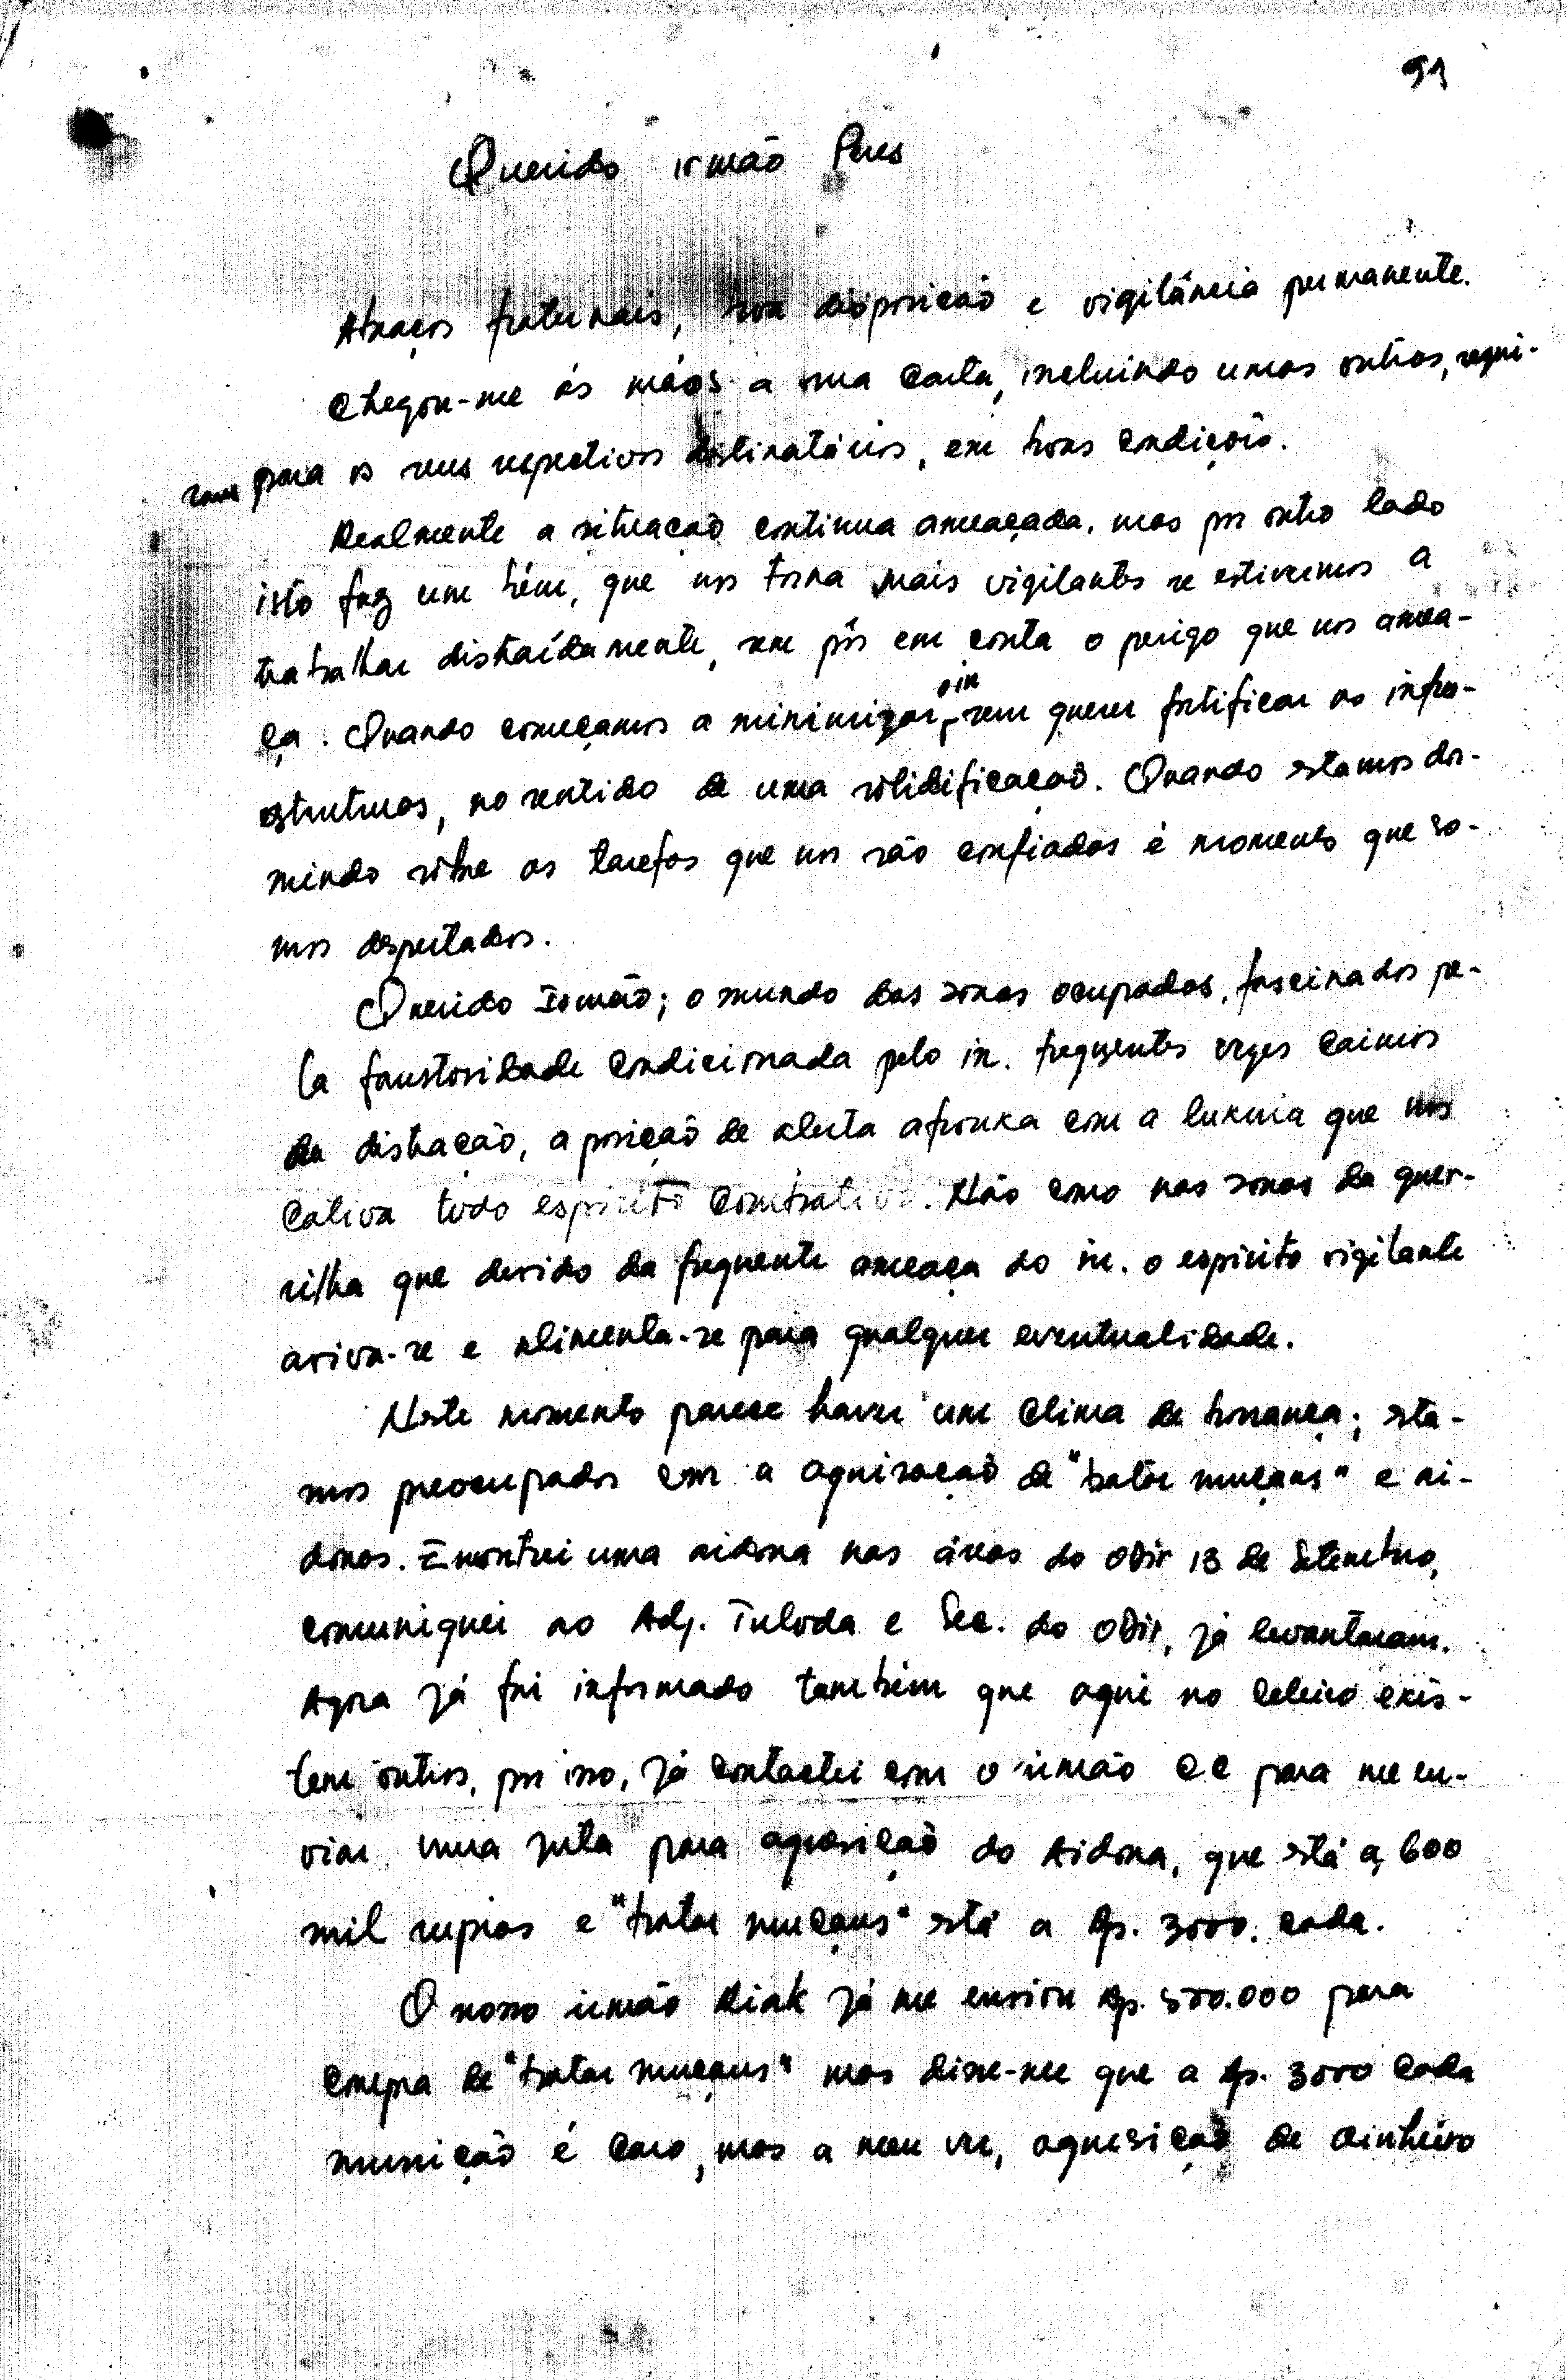 91
Querido irmão Peres
Abraços fraternais, boa disposição e vigilância permanente.
Chegou-me ás mãos a sua carta, incluindo umas outras, segui-
ram para os seus respectivos destinatários, em boas condições.
Realmente a situação continua ameaçada, mas por outro lado
isto faz um bém, que nos torna mais vigilantes se estivermos a
trabalhar distraídamente, sem pôr em conta o perigo que nos amea-
ça. Quando começamos a minimizar o in, sem querer fortificar as infra-
estruturas, no sentido de uma solidificação. Quando estamos dor-
mindo sobre as tarefas que nos são confiadas é momento que so-
mos despertados.
Querido Irmão; o mundo das zonas ocupadas, fascinados pe-
la faustosidade condicionada pelo in. freqüentes vezes caimos
da distração, a posição de alerta afrouxa com a luxuria que nos
cativa todo espirito combativo. Não como nas zonas da guer-
rilha que devido da frequente ameaça do in. o espirito vigilante
aviva-se e alimenta-se para qualquer eventualidade.
Neste momento parece haver um clima de bonança; esta-
mos preocupados com a aquisação de "batar muçaus" e ai-
donas. Encontrei uma aidona nas áreas do oDir 13 de Setembro,
comuniquei ao Adj. Tuloda e Sec. do oDir, já levantaram.
Agora já fui informado também que aqui no Celeiro exis-
tem outros, por isso, já contactei com o irmão CC para me en-
viar uma juta para aquisição do Aidona, que está a 600
mil rupias e "batar muçaus" está a Rp. 3000. cada.
O nosso irmão Riak já me enviou Rp. 500.000 para
compra de "batar muçaus" mas disse-me que a Rp. 3000 cada
munição é caro, mas a meu ver, aquesição de dinheiro